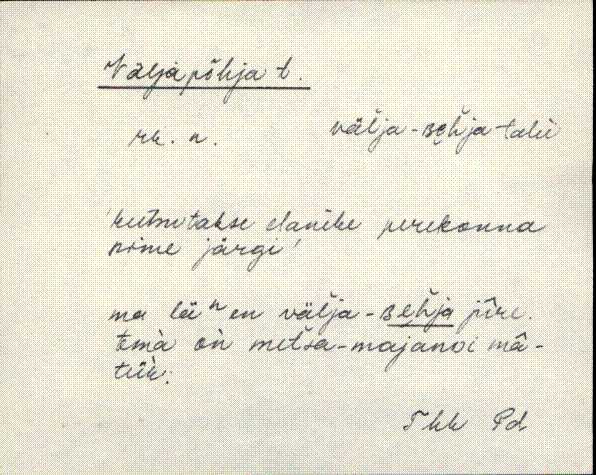 Välja põhja t.
rk. n. välja-ʙe̮h̆ja-talù
'kutsutakse elanike perekonna
nime järgi'
ma läⁿen välja-ʙe̮h̆ja pîre.
temà òn metsa-majanᴅi mâ-
tük:
Thk Pd